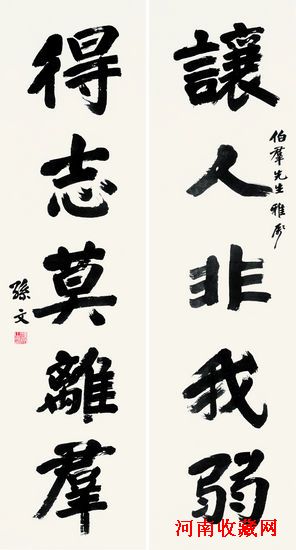 讓人非我弱
伯羣先生雅屬
得志莫離羣
孫文
河南收藏网